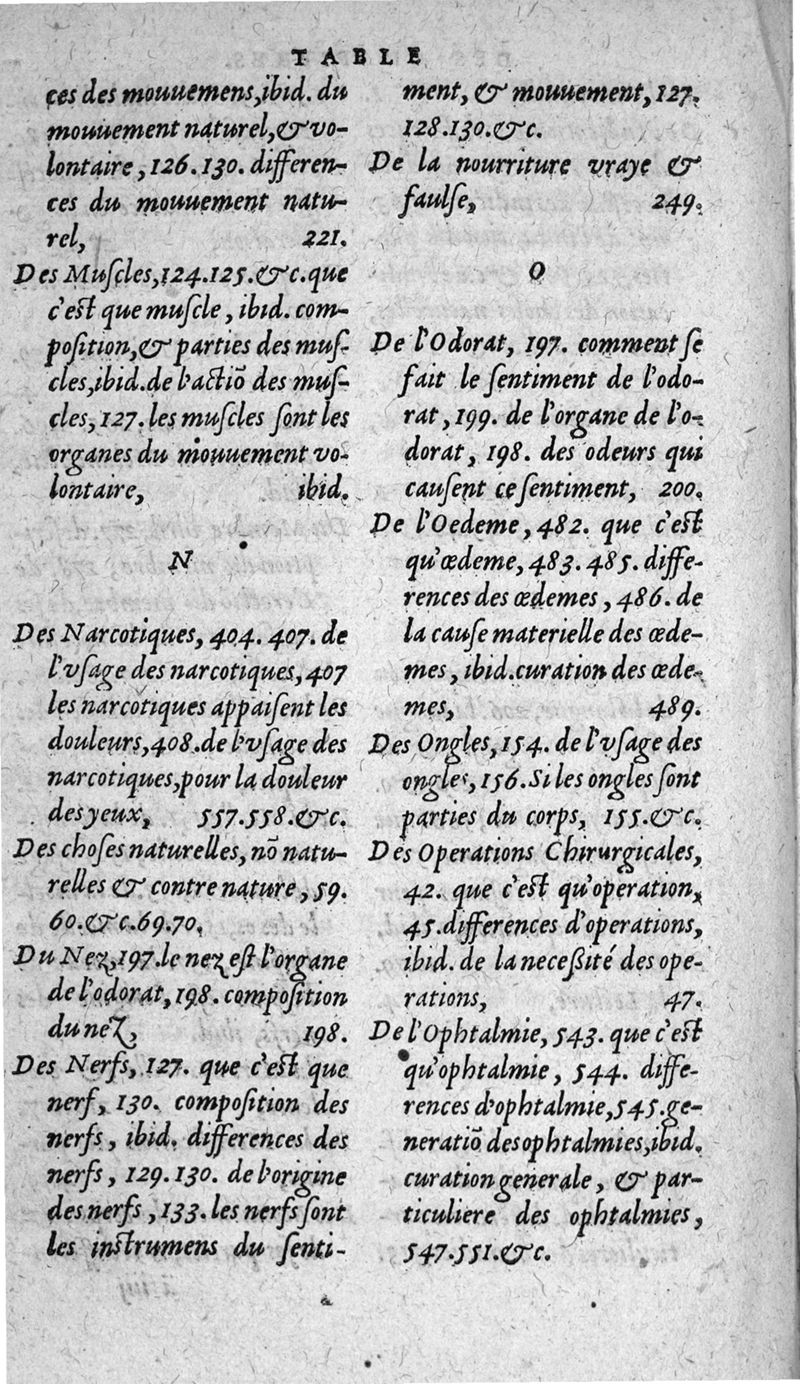 TABLE
ces des mouuemens,ibid. du
mouuement naturel,&vo-
lontaire,126.130. differen-
ces du mouuement natu-
rel, 221.
Des Muſcles,124.125.&c.que
c'eſt que muſcle, ibid. com-
poſition,& parties des muſ-
cles,ibid.de l'actiō des muſ-
cles,127.les muſcles ſont les
organes du mouuement vo-
lontaire, ibid.
N
Des Narcotiques, 404. 407. de
l'vſage des narcotiques,407
les narcotiques appaiſent les
douleurs,408.de l'vſage des
narcotiques,pour la douleur
des yeux, 557.558.&c.
Des choſes naturelles, nō natu-
relles & contre nature, 59.
60.&c.69.70.
Du Nez,197.le nez eſt l'organe
de l'odorat,198. compoſition
du nez, 198.
Des Nerfs, 127. que c'eſt que
nerf, 130. compoſition des
nerfs, ibid. differences des
nerfs, 129.130. de l'origine
des nerfs,133.les nerfs ſont
les inſtrumens du ſenti-
ment, & mouuement,127.
128.130.&c.
De la nourriture vraye &
faulſe, 249.
O
De l'Odorat, 197. comment ſe
fait le ſentiment de l'odo-
rat,199. de l'organe de l'o-
dorat, 198. des odeurs qui
cauſent ce ſentiment, 200.
De l'Oedeme, 482. que c'eſt
qu'œdeme,483.485.diffe-
rences des œdemes, 486. de
la cauſe materielle des œde-
mes, ibid.curation des œde-
mes, 489.
Des Ongles,154. de l'vſage des
ongles,156.Si les ongles ſont
parties du corps, 155.&c.
Des Operations Chirurgicales,
42. que c'eſt qu'operation,
45.differences d'operations,
ibid. de la neceßité des ope-
rations, 47.
De l'Ophtalmie, 543. que c'eſt
qu'ophtalmie, 544. diffe-
rences d'ophtalmie,545.ge-
neratiō des ophtalmies,ibid.
curation generale, & par-
ticuliere des ophtalmies,
547.551.&c.